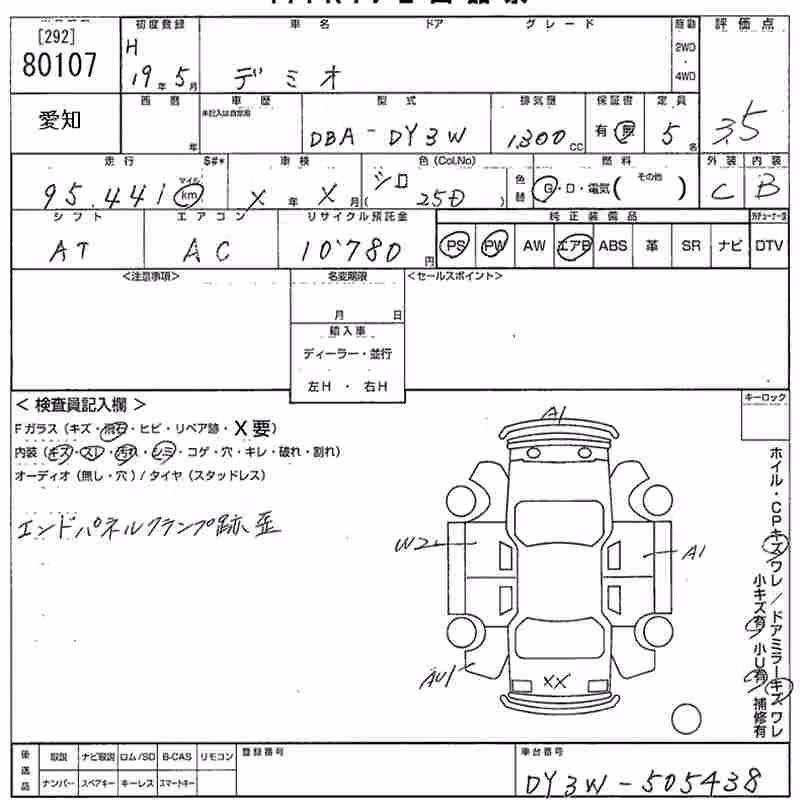 [292]
80107
愛知
初度登録 車名 ドア グレード 駆動 評価点
H 19年 5月 デミオ 2WD・4WD
西暦 年 車歴 型式 排気量 保証書 定員 3.5
未記入は自家用
DBA-DY3W 1300cc 有・無 5名
走行 S#* 車検 色(Col.No) 燃料 外装 内装
95,441 マイル km X年 X月 シロ 25D 色替 G・D・電気( その他 ) C B
シフト エアコン リサイクル預託金 純正装備品
AT AC 10'780円 PS PW AW エアB ABS 革 SR ナビ DTV
<注意事項> 名変期限 <セールスポイント>
月 日
輸入車
ディーラー・並行
左H・右H
<検査員記入欄> キーロック
Fガラス(キズ・飛石・ヒビ・リペア跡・X要)
内装(キズ・スレ・汚れ・シミ・コゲ・穴・キレ・破れ・割れ)
オーディオ(無し・穴)/タイヤ(スタッドレス)
エンドパネルクランプ跡、歪
A1
W2
A1
AU1
XX
ホイル・CPキズワレ/ドアミラーキズワレ
小キズ有 小U有 補修有
後送品 取説 ナビ取説 ロム/SD B-CAS リモコン 登録番号 車台番号
ナンバー スペアキー キーレス スマートキー DY3W-505438